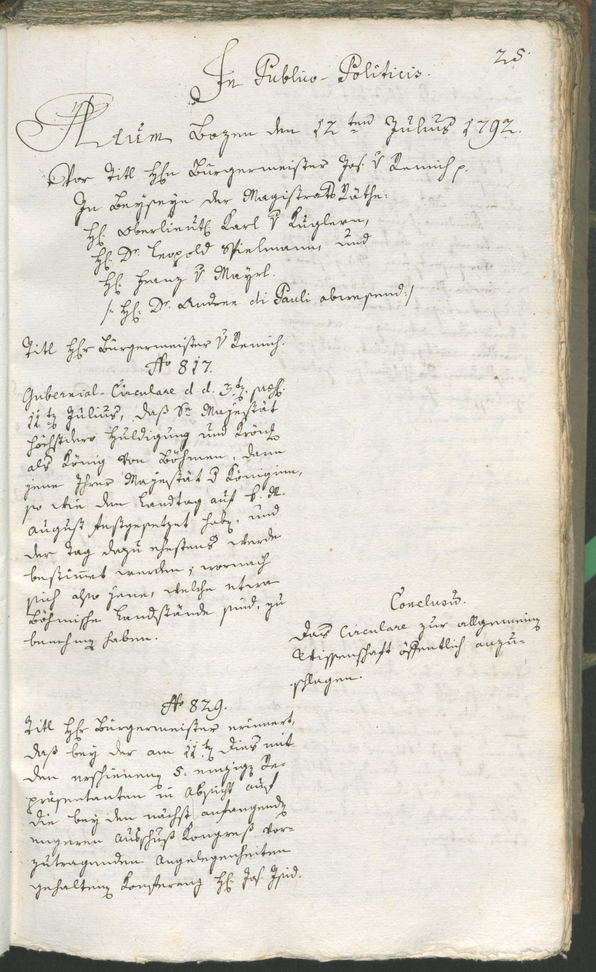 25.
In Publico-Politicis.
Actum Bozen den 12ten Julius 1792.
Vor Titl Hrn Bürgermeister Jos. v Remich p.
In Beyseyn der Magistrats Räthe:
H: Oberlieut: Karl v Kuglern,
H: Dr. Leopold Spielmann, und
H: Franz v Mayrl.
/: H: Dr. Andree di Pauli abwesend :/
Titl Hr Bürgermeister v Remich.
No 817.
Gubernial-Circulare d. d. 3t: praes:
11t: Julius, daß Se Majestät
höchstdero Huldigung und Krönung
als König von Böhmen, dann
jene Ihrer Majestät d Königinn,
so wie den Landtag auf k. M.
August festgesetzet habe, und
der Tag dazu ehestens werde
bestimmet werden; wornach
sich also jene, welche etwa
Böhmische Landstände sind, zu
benehmen haben.
Conclusum.
Das Circulare zur allgemeinen
Wissenschaft öffentlich anzu-
schlagen.
No 829.
Titl Hr Bürgermeister erinnert,
daß bey der am 11t: dies mit
den erschienenen 5. einzigen Re-
präsentanten in Absicht auf
die bey den nächst anfangenden
engeren Ausschuß Kongreß vor-
zutragenden Angelegenheiten
gehaltenen Konferenz H: Jos. Isid.